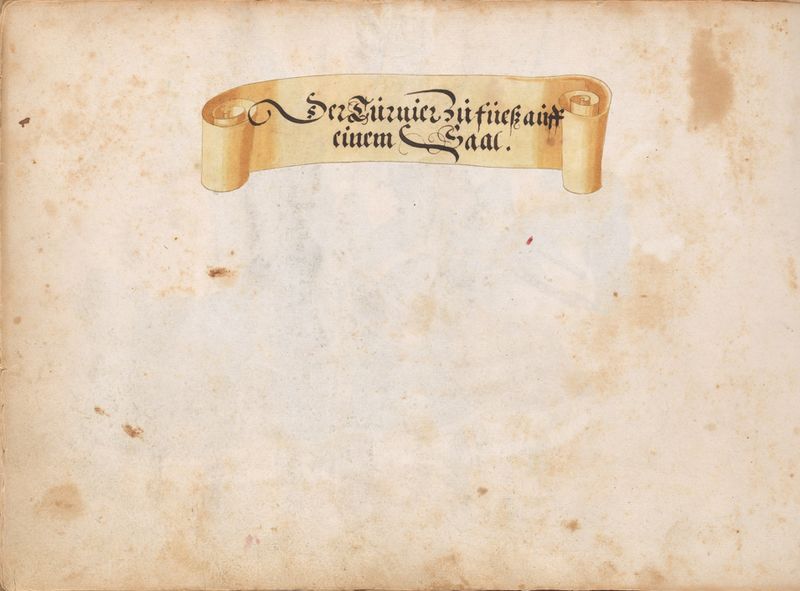 Der Turnier Zu fueß auff
einem Saal.